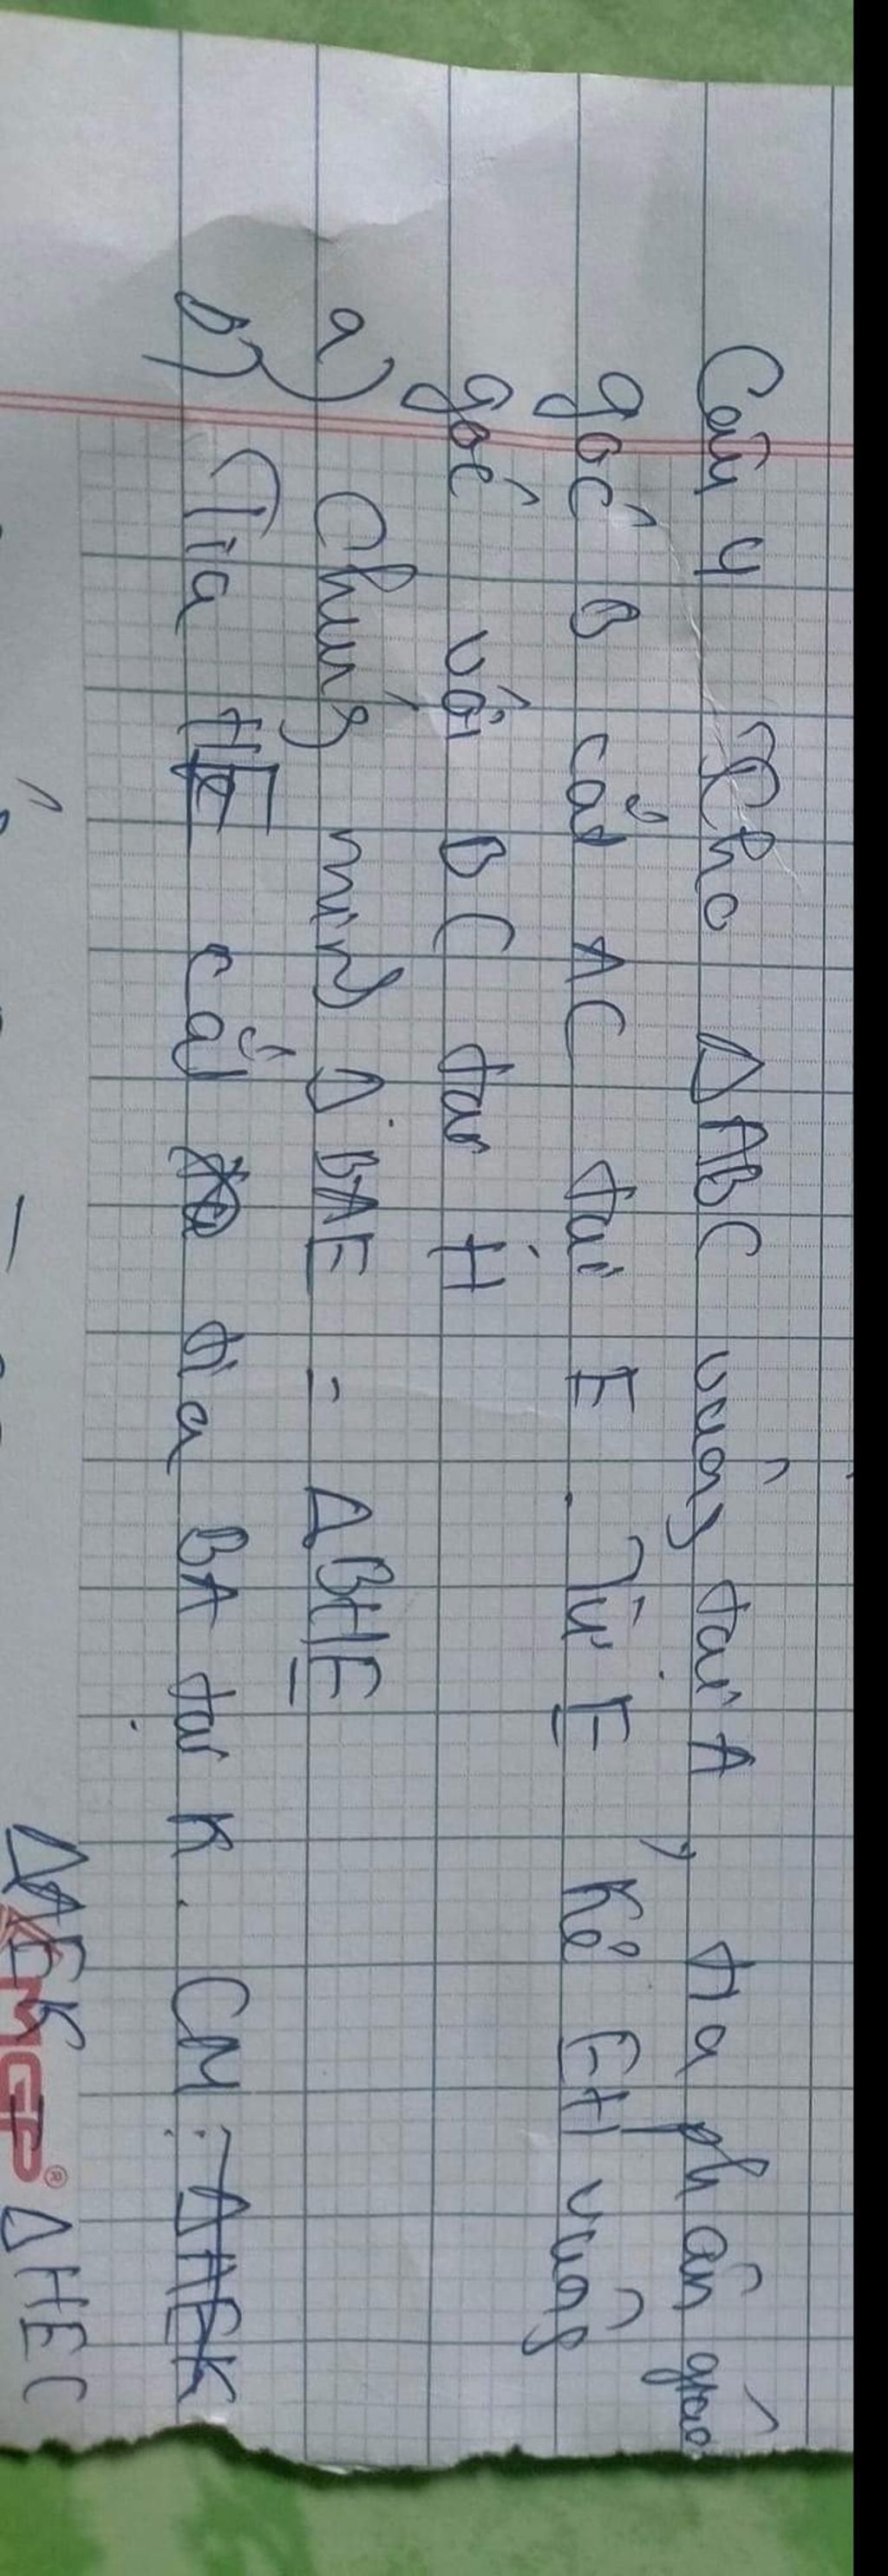 Câu 4 Cho ΔABC vuông tại A, tia phân giác
góc B cắt AC tại E. Từ E kẻ EH vuông
góc với BC tại H
a) Chứng minh ΔBAE = ΔBHE
b) Tia HE cắt tia BA tại K. CM: ΔAEK
ΔAEK ΔHEC